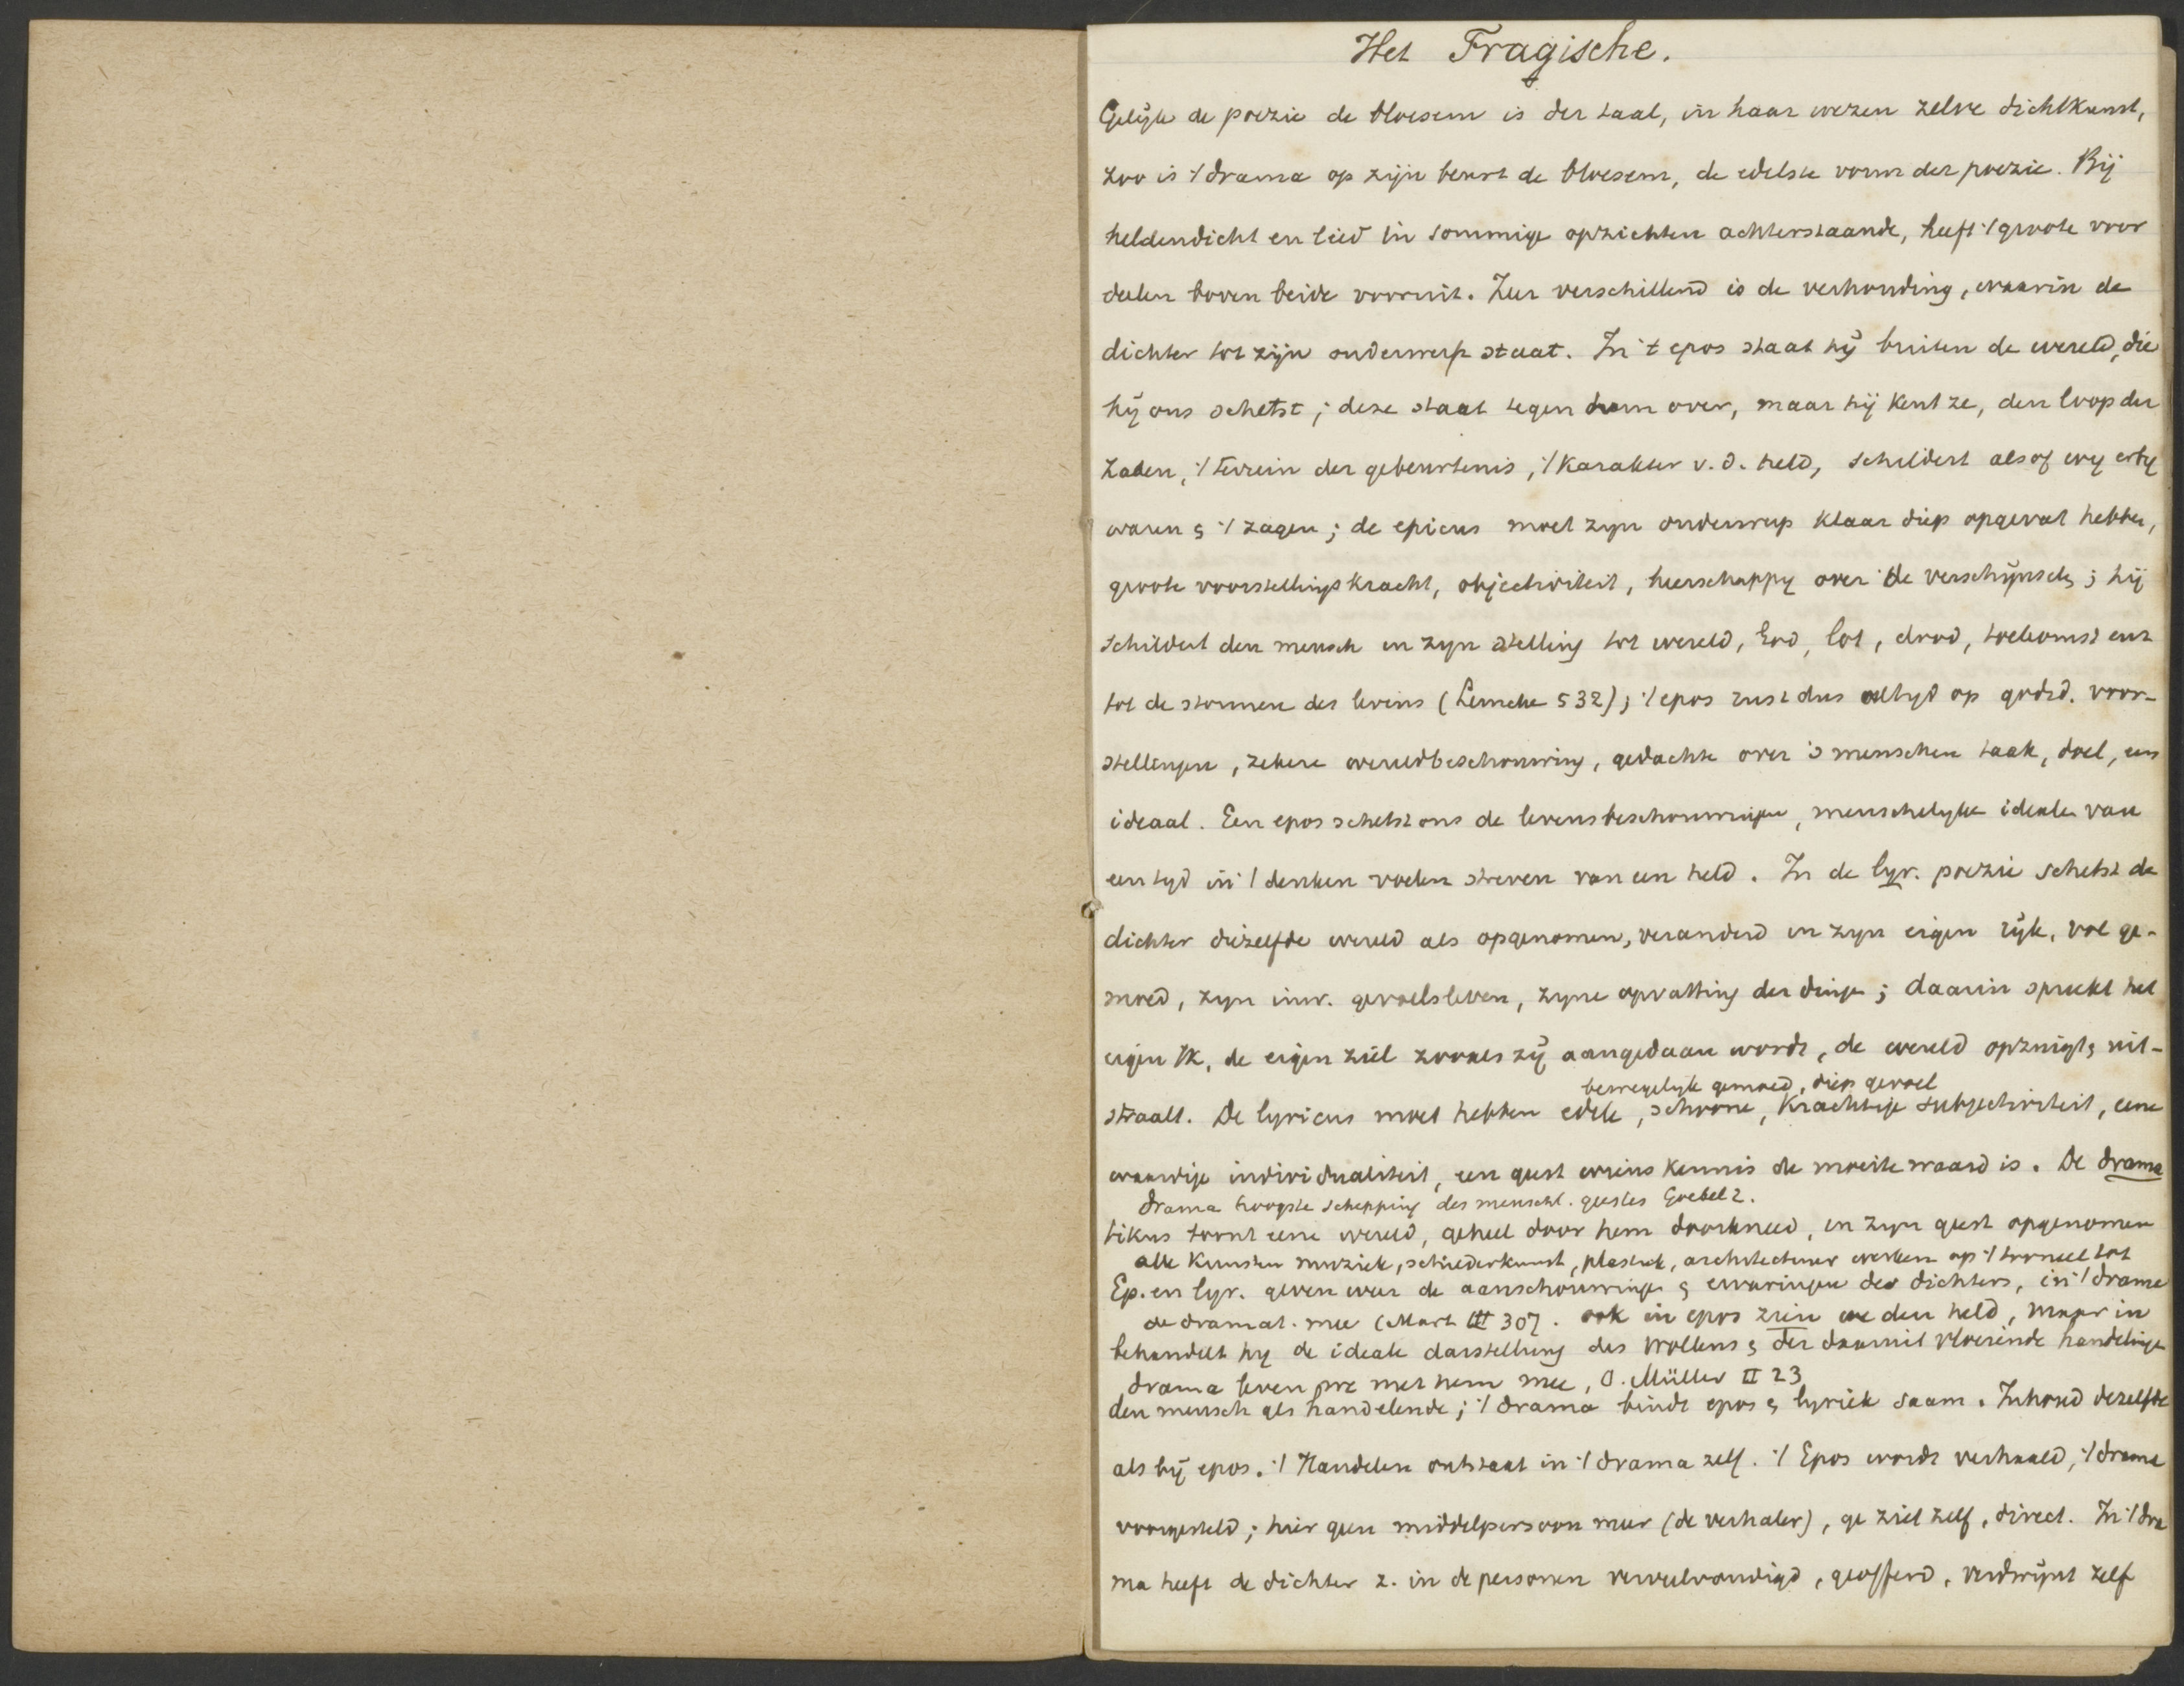 Het Tragische.
Gelijk de poezie de bloesem is der taal, in haar wezen zelve dichtkunst,
zoo is 't drama op zijn beurt de bloesem, de edelste vorm der poezie. Bij
heldendicht en lied in sommige opzichten achterstaande, heeft 't groote voor
deelen boven beide vooruit. Zeer verschillend is de verhouding, waarin de
dichter tot zijn onderwerp staat. In 't epos staat hij buiten de wereld, die
hij ons schetst; deze staat tegen hem over, maar hij kent ze, den loop der
zaken, 't terrein der gebeurtenis, 't karakter v. d. held, schildert alsof wij erbij
waren & 't zagen; de epicus moet zijn onderwerp klaar diep opgevat hebben,
groote voorstellingskracht, objectiviteit, heerschappy over de verschijnsels; hij
schildert den mensch in zyn stelling tot wereld, God, lot, dood, toekomst enz
tot de stormen des levens (Lemcke 532); 't epos rust dus altyd op godsd. voor-
stellingen, zekere wereldbeschouwing, gedachte over 's menschen taak, doel, een
ideaal. Een epos schetst ons de levensbeschouwingen, menschelyke idealen van
een tyd in 't denken voelen streven van een held. In de lyr. poezie schetst de
dichter diezelfde wereld als opgenomen, veranderd in zyn eigen rijk, vol ge-
moed, zyn inw. gevoelsleven, zyne opvatting der dingen; daarin spreekt het
eigen Ik, de eigen ziel zooals zij aangedaan wordt, de wereld opzuigt & uit-
bewegelyk gemoed, diep gevoel
straalt. De lyricus moet hebben edele, schoone, krachtige subjectiviteit, eene
waardige individualiteit, een geest wiens kennis de moeite waard is. De drama
drama hoogste schepping des menschl. geestes Goebel 2.
tikus toont eene wereld, geheel door hem doorkneed, in zyn geest opgenomen
alle kunsten muziek, schilderkunst, plastiek, architectuur werken op 't tooneel tot
Ep. en lyr. geven weer de aanschouwingen & ervaringen des dichters, in 't drama
de dramat. mee (Mart III 307. ook in epos zien we den held, maar in
behandelt hy de ideale darstellung des Wollens & der daaruit vloeiende handelingen
drama leven we met hem mee, O. Müller II 23
den mensch als handelende; 't drama bindt epos & lyriek saam. Inhoud dezelfde
als bij epos. 't Handelen ontstaat in 't drama zelf. 't Epos wordt verhaald, 't drama
voorgesteld; hier geen middelpersoon meer (de verhaler), ge ziet zelf, direct. In 't dra
ma heeft de dichter z. in de personen verveelvoudigd, geofferd, verdwijnt zelf